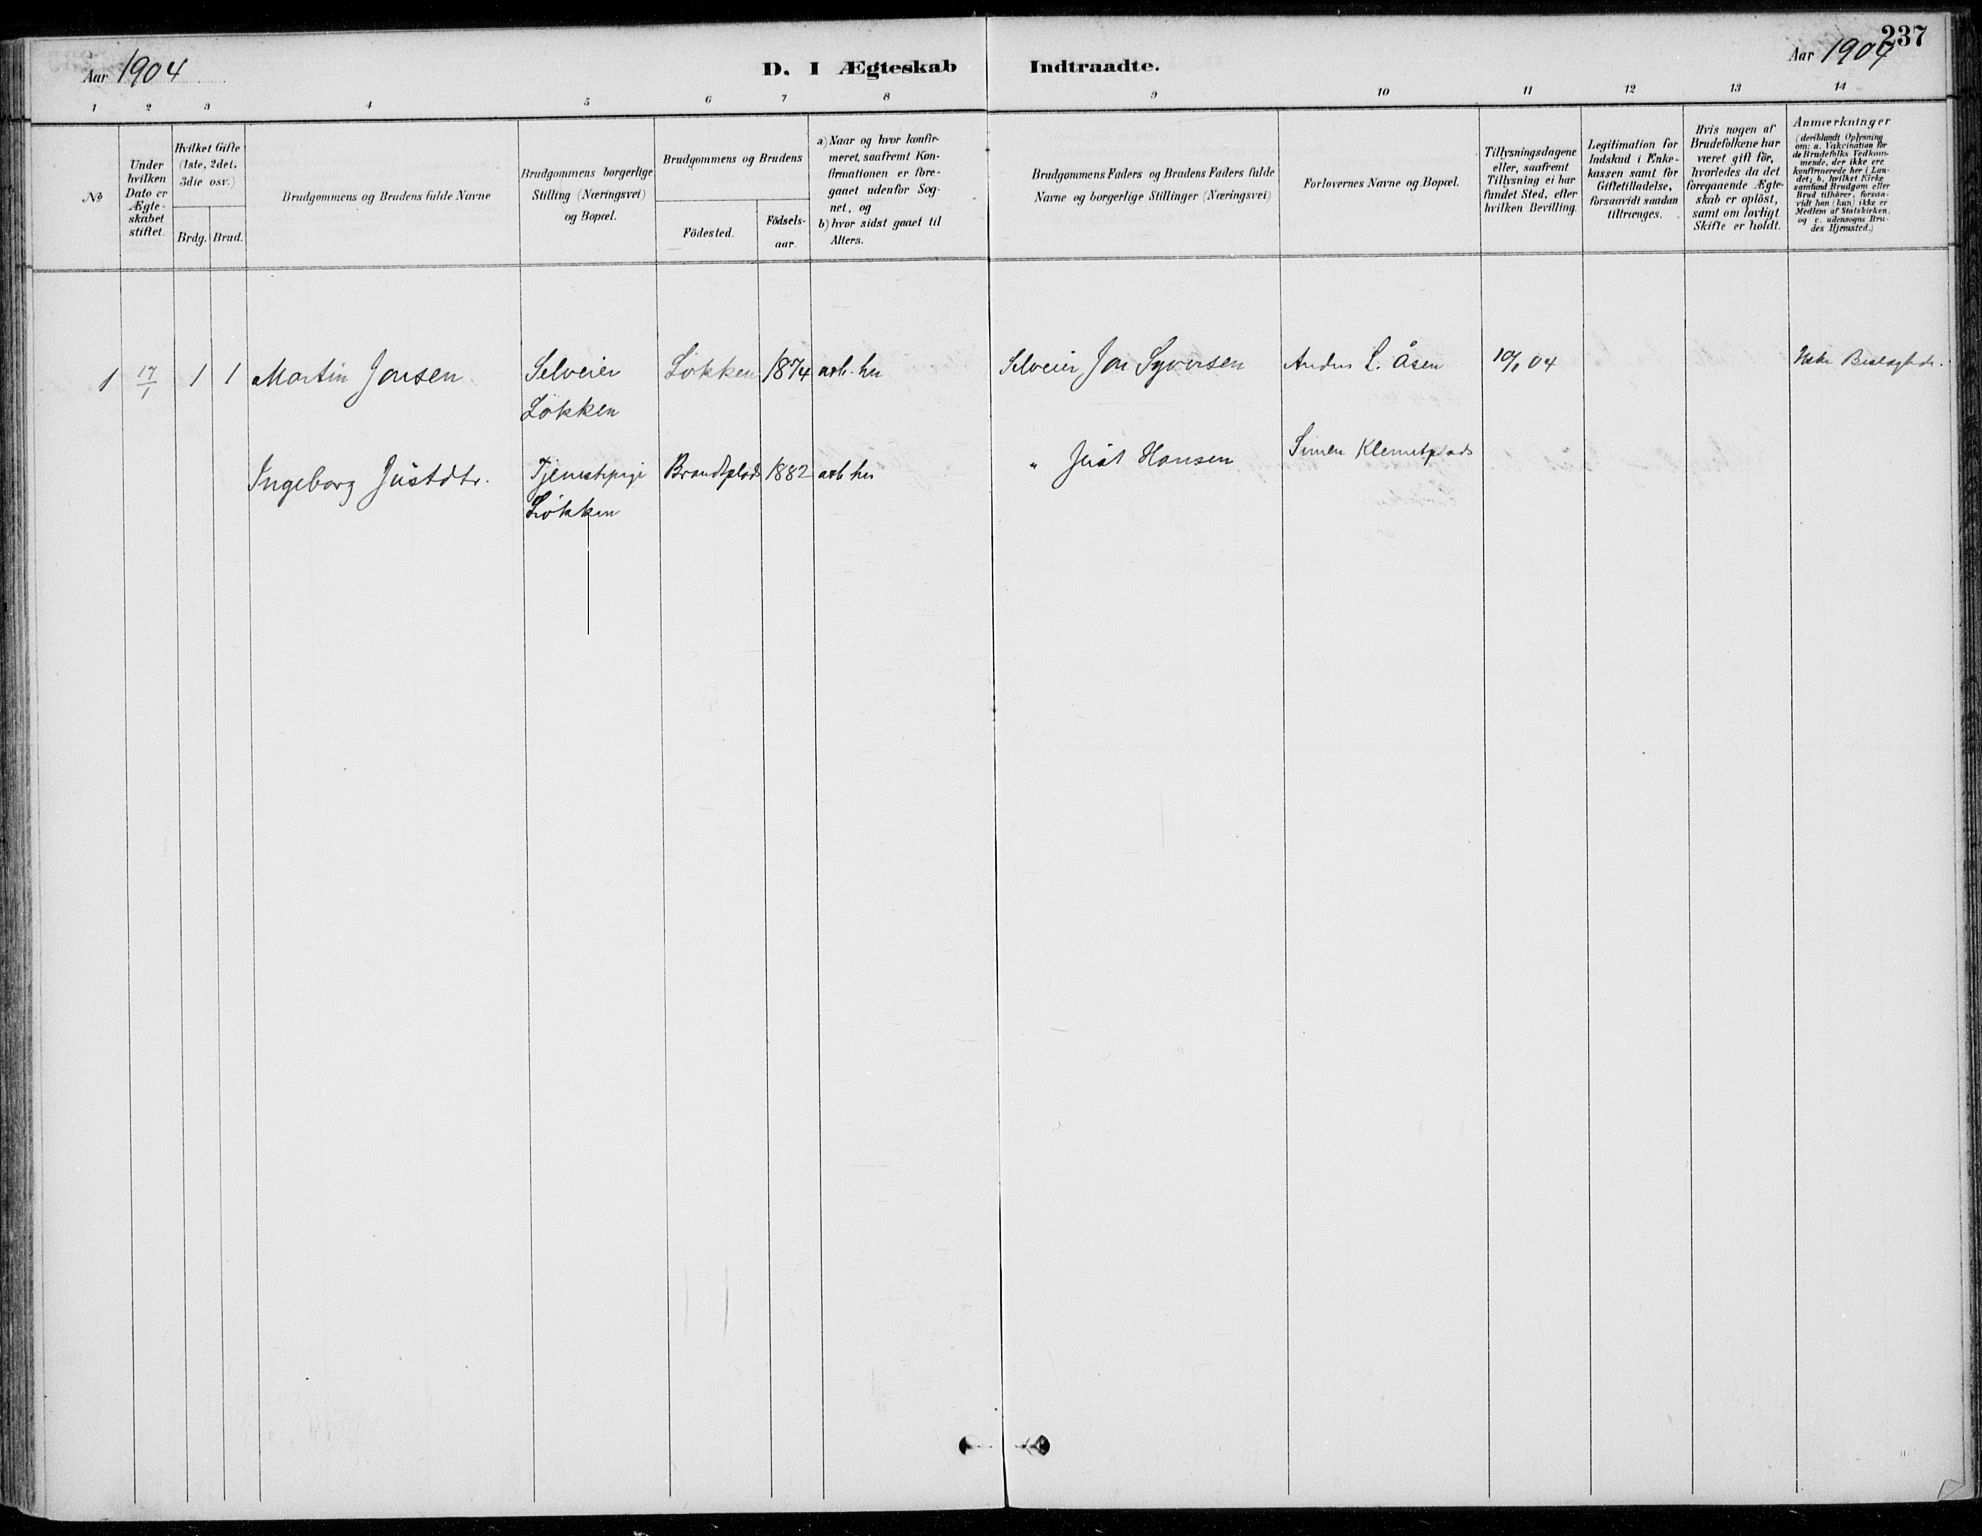 237
Aar 1904
D. I Ægteskab Indtraadte.
Aar 1904
1 2 3 4 5 6 7 8 9 10 11 12 13 14
No
Under hvilken Dato er Ægte-skabet stiftet.
Hvilket Gifte (1ste, 2det, 3die osv.)
Brdg. Brud.
Brudgommens og Brudens fulde Navne
Brudgommens borgerlige Stilling (Næringsvei) og Bopæl.
Brudgommens og Brudens
Födested.
Födsels-aar.
a) Naar og hvor konfir-
meret, saafremt Kon-
firmationen er fore-
gaaet udenfor Sog-
net, og
b) hvor sidst gaaet til
Alters.
Brudgommens Faders og Brudens Faders fulde
Navne og borgerlige Stillinger (Næringsvei)
Forlovernes Navne og Bopæl.
Tillysningsdagene
eller, saafremt
Tillysning ei har
fundet Sted, efter
hvilken Bevilling.
Legitimation for
Indskud i Enke-
kassen samt for
Giftetilladelse,
forsaavidt saadan
tiltrænges.
Hvis nogen af
Brudefolkene har
været gift för,
hvorledes da det
foregaaende Ægte-
skab er oplöst,
samt om lovligt
Skifte er holdt.
Anmærkninger
(deriblandt Oplysning
om: a. Vakcination for
de Brudefolks Vedkom-
mende, der ikke ere
konfirmerede her i Lan-
det; b. hvilket Kirke-
samfund Brudgom eller
Brud tilhører, forsaa-
vidt han (hun) ikke er
Medlem af Statskirken,
og c. udensogns Bru-
des Hjemsted.)
1 17/1 1 1 Martin Jonsen Selveier Løkken 1874 Selveier Jon Syversen Anders L. Åsen 10/1 04 Ikke Beslægtede.
Løkken
Ingeborg Justdtr. Tjenestepige Brandtplads 1882 " Just Hansen Simen Klemetplads
Løkken